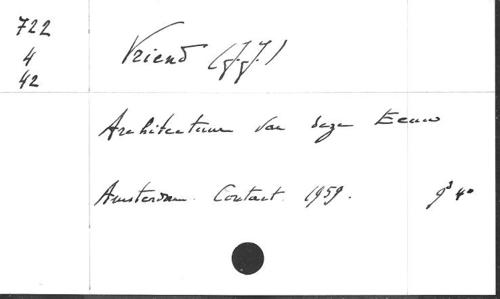 722
4
42
Vriend (J.J.)
Architectuur van deze Eeuw
Amsterdam. Contact. 1959.